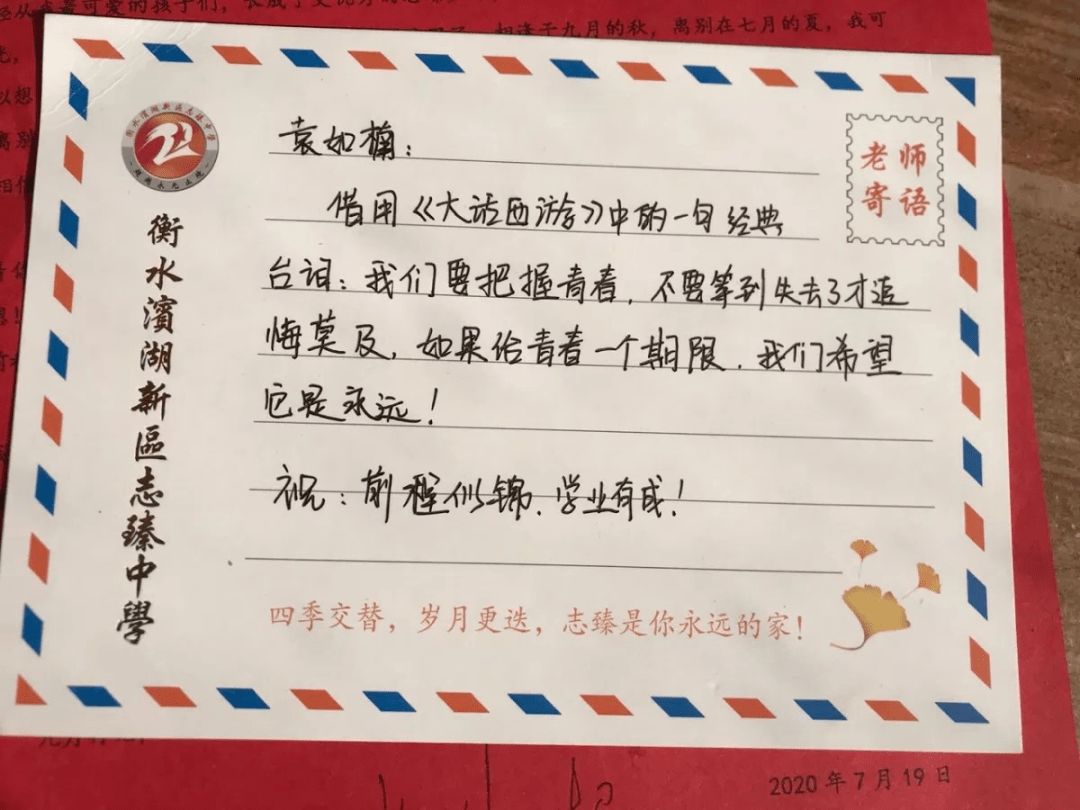 最可爱的孩子们，
相逢于九月的秋，离别在七月的夏，我可
以想
离别
相信
老师
寄语
衡水滨湖新区志臻中学
衡水濱湖新區志臻中學
袁如楠：
借用《大话西游》中的一句经典
台词：我们要把握青春，不要等到失去了才追
悔莫及，如果给青春一个期限，我们希望
它是永远！
祝：前程似锦、学业有成！
四季交替，岁月更迭，志臻是你永远的家！
2020年7月19日